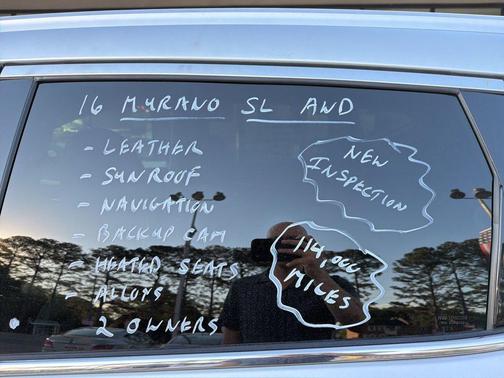 16 MURANO SL AWD
- LEATHER
- SUNROOF
- NAVIGATION
- BACKUP CAM
- HEATED SEATS
- ALLOYS
2 OWNERS
NEW
INSPECTION
114,000
MILES